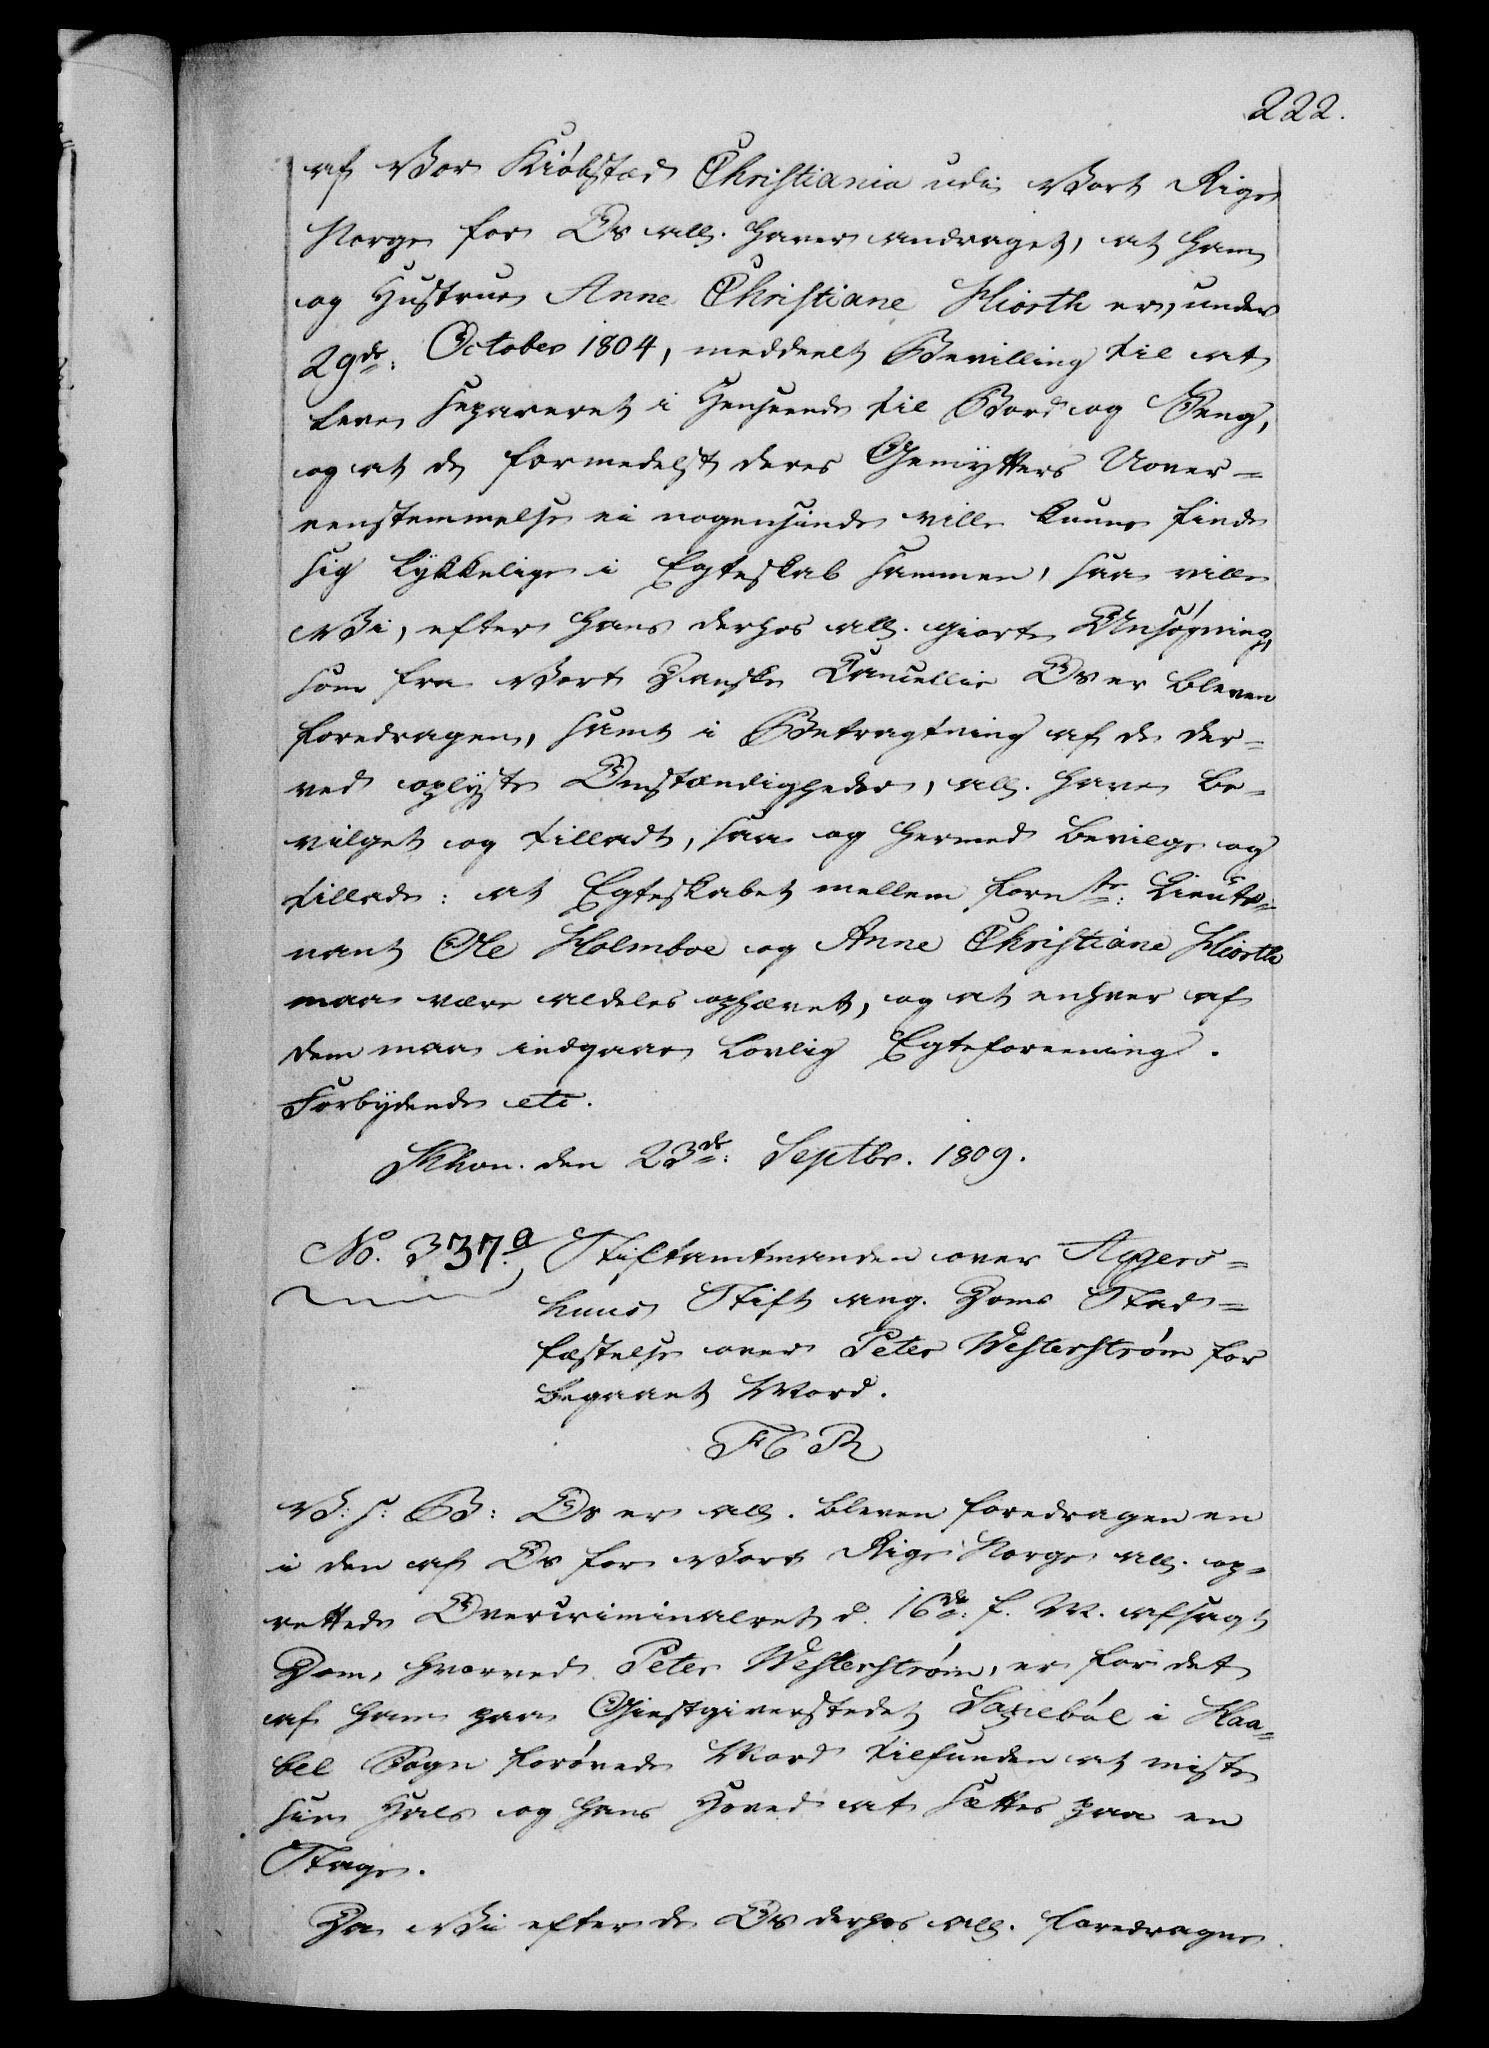 222.
af Vor Kiöbstad Christiania udi Vort Rige
Norge for Os all. haver andraget, at ham
og Hustrue Anne Christiane Hiorth er, under
29de: October 1804, meddeelt Bevilling til at
leve separeret i Henseende til Bord og Seng,
og at de formedelst deres Gemytters Uover-
eensstemmelse ei nogensinde ville kunne finde
sig lykkelige i Egteskab sammen, saa ville
Vi, efter hans derhos all. giorte Ansøgning,
som fra Vort Danske Cancellie Os er bleven
foredragen, samt i Betragtning af de der-
ved oplyste Omstændigheder, all. have be-
vilget og tilladt, saa og hermed bevilge og
tillade: at Egteskabet mellem fornte: Lieute-
nant Ole Holmboe og Anne Christiane Hiorth
maa være aldeles ophævet, og at enhver af
dem maa indgaae lovlig Egteforening.
Forbydende etc.
Khavn. den 23de: Septbr. 1809.
No. 337.a Stiftamtmanden over Aggers-
huus Stift ang. Doms Stad-
fæstelse over Peter Westerstrøm for
begaaet Mord.
F6R
V: s: G: Os er all. bleven foredragen en
i den af Os for Vort Rige Norge all. op-
rettede Overcriminalret d. 16de: f. M. afsagt
Dom, hvorved Peter Westerstrøm, er for det
af ham paa Giestgiverstedet i Haa-
bel Sogn forøvede Mord tilfunden at miste
sin Hals og hans Hoved at sættes paa en
Stage.
Da Vi efter de Os derhos all. foredragne